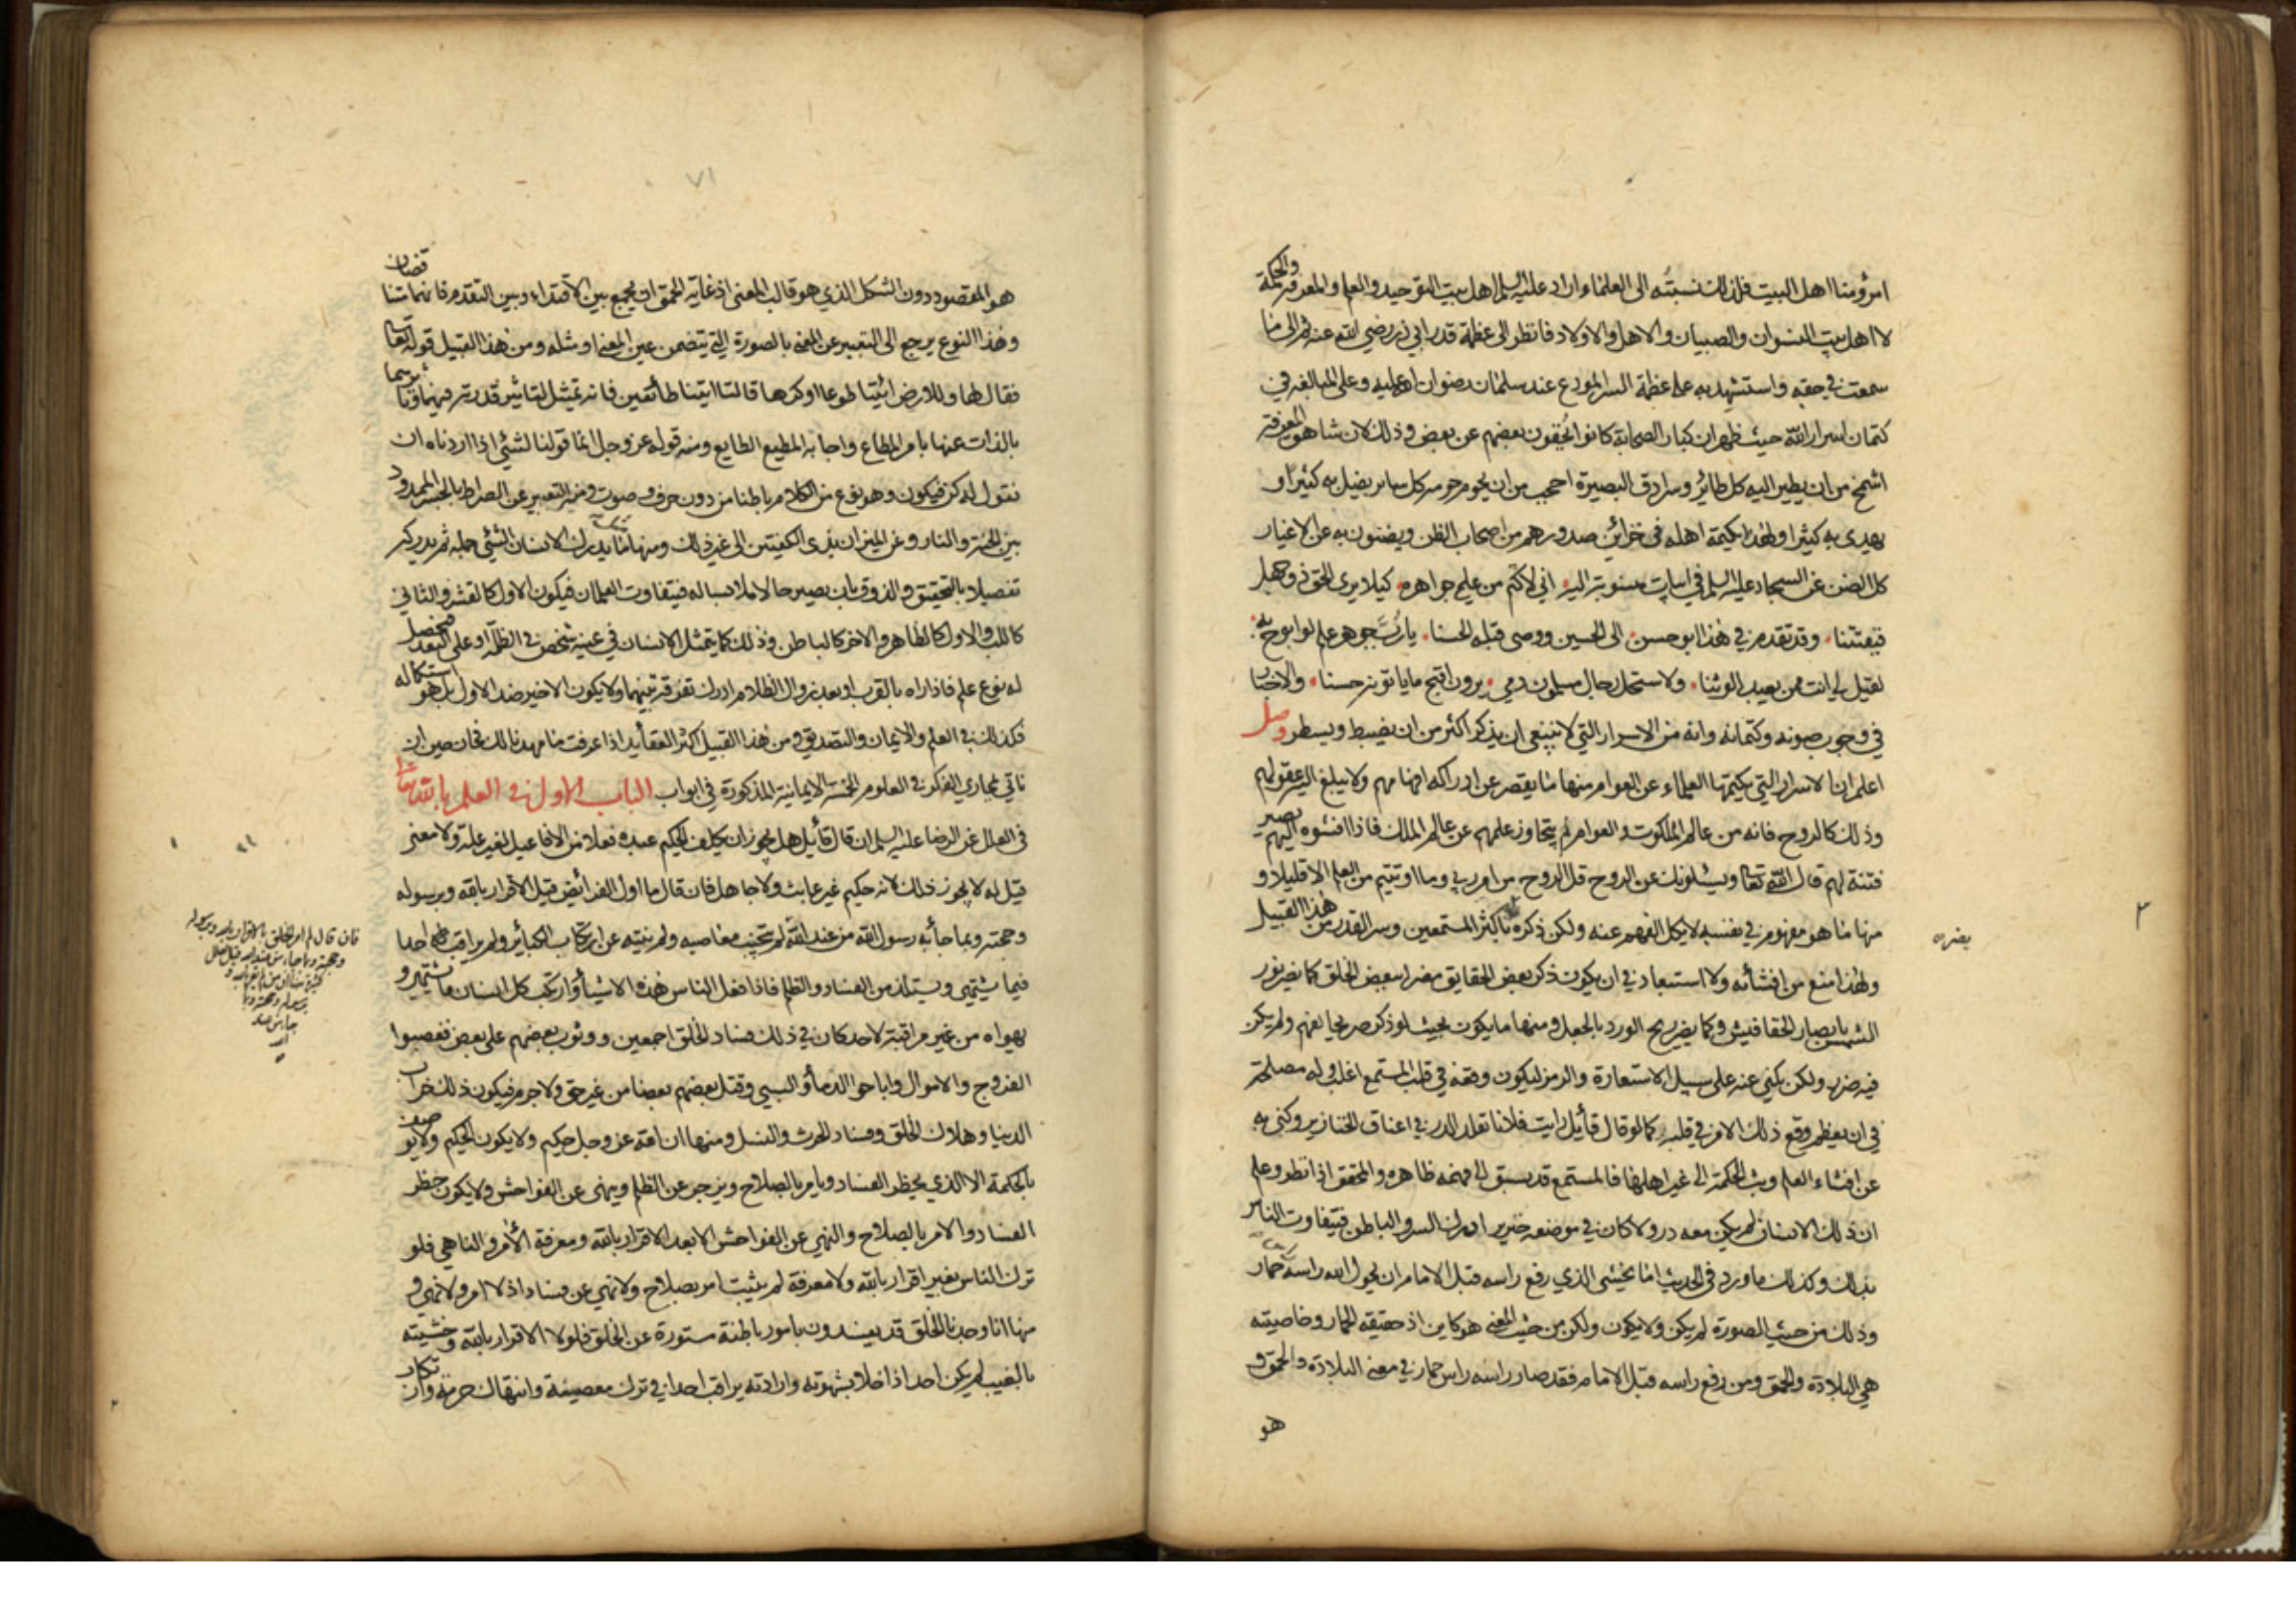 امرؤ منا اهل البيت فلذلك نسبته الى العلماء اراد عليه السلم اهل بيت التوحيد والعلم والمعرفة والحكمة
لا اهل بيت النسوان والصبيان والاهل والاولاد فانظر الى عظمة قدر ابي ذر رضي الله عنه ثم الى ما
سمعت في حقه واستشهد به على عظمة السر المودع عند سلمان رضوان الله عليه وعلى المبالغة في
كتمان اسرار الله حيث ظهر ان كبار الصحابة كانوا يخفون بعضهم عن بعض وذلك لان شاهق المعرفة
اشمخ من ان يطير اليه كل طائر وسرادق البصيرة احجب من ان يحوم حومه كل ساير يضل به كثيرا و
يهدي به كثيرا ولهذا يكتمه اهله في خزائن صدورهم من اصحاب الظن ويضنون به عن الاغيار
كل الضن عن السجاد عليه السلم في ابيات منسوبة اليه اني لاكتم من علمي جواهره كيلا يرى الحق ذو جهل
فيفتتنا وقد تقدم في هذا ابو حسن الى الحسين ووصى قبله الحسنا يا رب جوهر علم لو ابوح به
لقيل لي انت ممن يعبد الوثنا ولاستحل رجال مسلمون دمي يرون اقبح ما ياتونه حسنا والاخبار
في وجوب صونه وكتمانه وانه من الاسرار التي لا ينبغي ان يذكر اكثر من ان يضبط ويسطر وصل
اعلم ان الاسرار التي يكتمها العلماء عن العوام منها ما يقصر عن ادراكه افهامهم ولا يبلغ اليه عقولهم
وذلك كالروح فانه من عالم الملكوت والعوام لم يتجاوز علمهم عن عالم الملك فاذا افشوه اليهم يصير
فتنة لهم قال الله تعالى ويسئلونك عن الروح قل الروح من امر ربي وما اوتيتم من العلم الا قليلا و
منها ما هو مفهوم في نفسه لا يكل الفهم عنه ولكن ذكره باكثر المستمعين وسر القدر من هذا القبيل
يضر
ولهذا منع من افشائه ولا استبعاد في ان يكون ذكر بعض الحقايق مضرا ببعض الخلق كما يضر نور
الشمس بابصار الخفافيش وكما يضر ريح الورد بالجعل ومنها ما يكون بحيث لو ذكر صريحا لفهم ولم يكن
فيه ضرر ولكن يكنى عنه على سبيل الاستعارة والرمز ليكون وقعه في قلب المستمع اغلب وله مصلحة
في ان يعظم وقع ذلك الامر في قلبه كما لو قال قائل رايت فلانا تقلد الدر في اعناق الخنازير وكنى به
عن افشاء العلم وبث الحكمة الى غير اهلها فالمستمع قد يسبق الى فهمه ظاهره والمحقق اذا نظر وعلم
ان ذلك الانسان لم يكن معه در ولا كان في موضعه خنزير ادرك السر والباطن فيتفاوت الناس
بذلك وكذلك ما ورد في الحديث اما يخشى الذي رفع راسه قبل الامام ان يحول الله راسه حمار
وذلك من حيث الصورة لم يكن ولا يكون ولكن من حيث المعنى هو كاين اذ حقيقة الحمار وخاصيته
هي البلادة والحمق ومن رفع راسه قبل الامام فقد صار راسه راس حمار في معنى البلادة والحمق و
هو
٧١
هو المقصود دون الشكل الذي هو قالب المعنى اذ غاية الحمق ان يجمع بين الاقتداء وبين التقدم فانهما متناقضان
وهذا النوع يرجع الى التعبير عن المعنى بالصورة التي يتضمن عين المعنى او مثله ومن هذا القبيل قوله تعالى
فقال لها وللارض ائتيا طوعا او كرها قالتا اتينا طائعين فانه تمثيل لتاثير قدرته فيهما وتاثرهما
بالذات عنها بامر المطاع واجابة المطيع الطايع ومنه قوله عز وجل انما قولنا لشئ اذا اردناه ان
نقول له كن فيكون وهو نوع من الكلام باطنا من دون حرف وصوت ومنه التعبير عن الصراط بالجسر الممدود
بين الجنة والنار وعن الميزان بذي الكفتين الى غير ذلك ومنها ما يدرك الانسان الشئ جملة ثم يدركه
تفصيلا بالتحقيق والذوق بان يصير حالا ملابسا له فيتفاوت العلمان فيكون الاول كالقشر والثاني
كاللب والاول كالظاهر والاخر كالباطن وذلك كما يتمثل الانسان في عينه شخص في الظلمة او على البعد فيحصل
له نوع علم فاذا راه بالقرب او بعد زوال الظلام ادرك تفرقة بينهما ولا يكون الاخير ضد الاول بل هو استكماله
فكذلك في العلم والايمان والتصديق ومن هذا القبيل اكثر العقايد اذا عرفت ما مهدنا لك فحان حين ان
ناتي بمجاري الفكر في العلوم الخمسة الايمانية المذكورة في ابواب الباب الاول في العلم بالله تعالى
في العلل عن الرضا عليه السلم ان قال قائل هل يجوز ان يكلف الحكيم عبده فعلا من الافاعيل لغير علة ولا معنى
قيل له لا يجوز ذلك لانه حكيم غير عابث ولا جاهل فان قال ما اول الفرائض قيل الاقرار بالله وبرسوله
وحجته وبما جاء به رسول الله من عند الله لم يجتنب معاصيه ولم ينته عن ارتكاب الكبائر ولم يراقب احدا
فيما يشتهي ويستلذ من الفساد والظلم فاذا فعل الناس هذه الاشياء وارتكب كل انسان ما يشتهي و
يهواه من غير مراقبة لاحد كان في ذلك فساد الخلق اجمعين ووثوب بعضهم على بعض فغصبوا
الفروج والاموال واباحوا الدماء والسبي وقتل بعضهم بعضا من غير حق ولا جرم فيكون ذلك خراب
الدنيا وهلاك الخلق وفساد الحرث والنسل ومنها ان الله عز وجل حكيم ولا يكون الحكيم ولا يوصف
بالحكمة الا الذي يحظر الفساد ويامر بالصلاح ويزجر عن الظلم وينهى عن الفواحش ولا يكون حظر
الفساد والامر بالصلاح والنهي عن الفواحش الا بعد الاقرار بالله ومعرفة الأمر والناهي فلو
ترك الناس بغير اقرار بالله ولا معرفة لم يثبت امر بصلاح ولا نهي عن فساد اذ لا امر ولا نهي و
منها انا وجدنا الخلق قد يفسدون بامور باطنة مستورة عن الخلق فلولا الاقرار بالله وخشيته
بالغيب لم يكن احد اذا خلا بشهوته وارادته يراقب احدا في ترك معصية وانتهاك حرمة وارتكاب
فان قال لم امر الخلق بالاقرار بالله وبرسوله